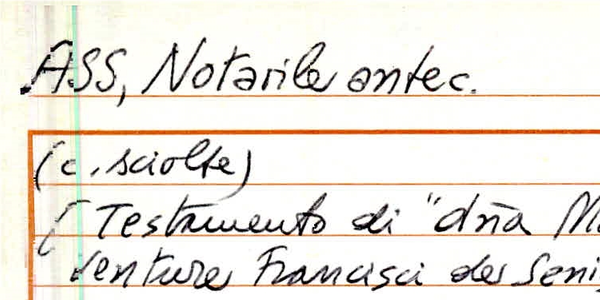 ASS, Notarile antec.
(c. sciolte)
[ Testamento di "dña M
Venture Francisci de Seni